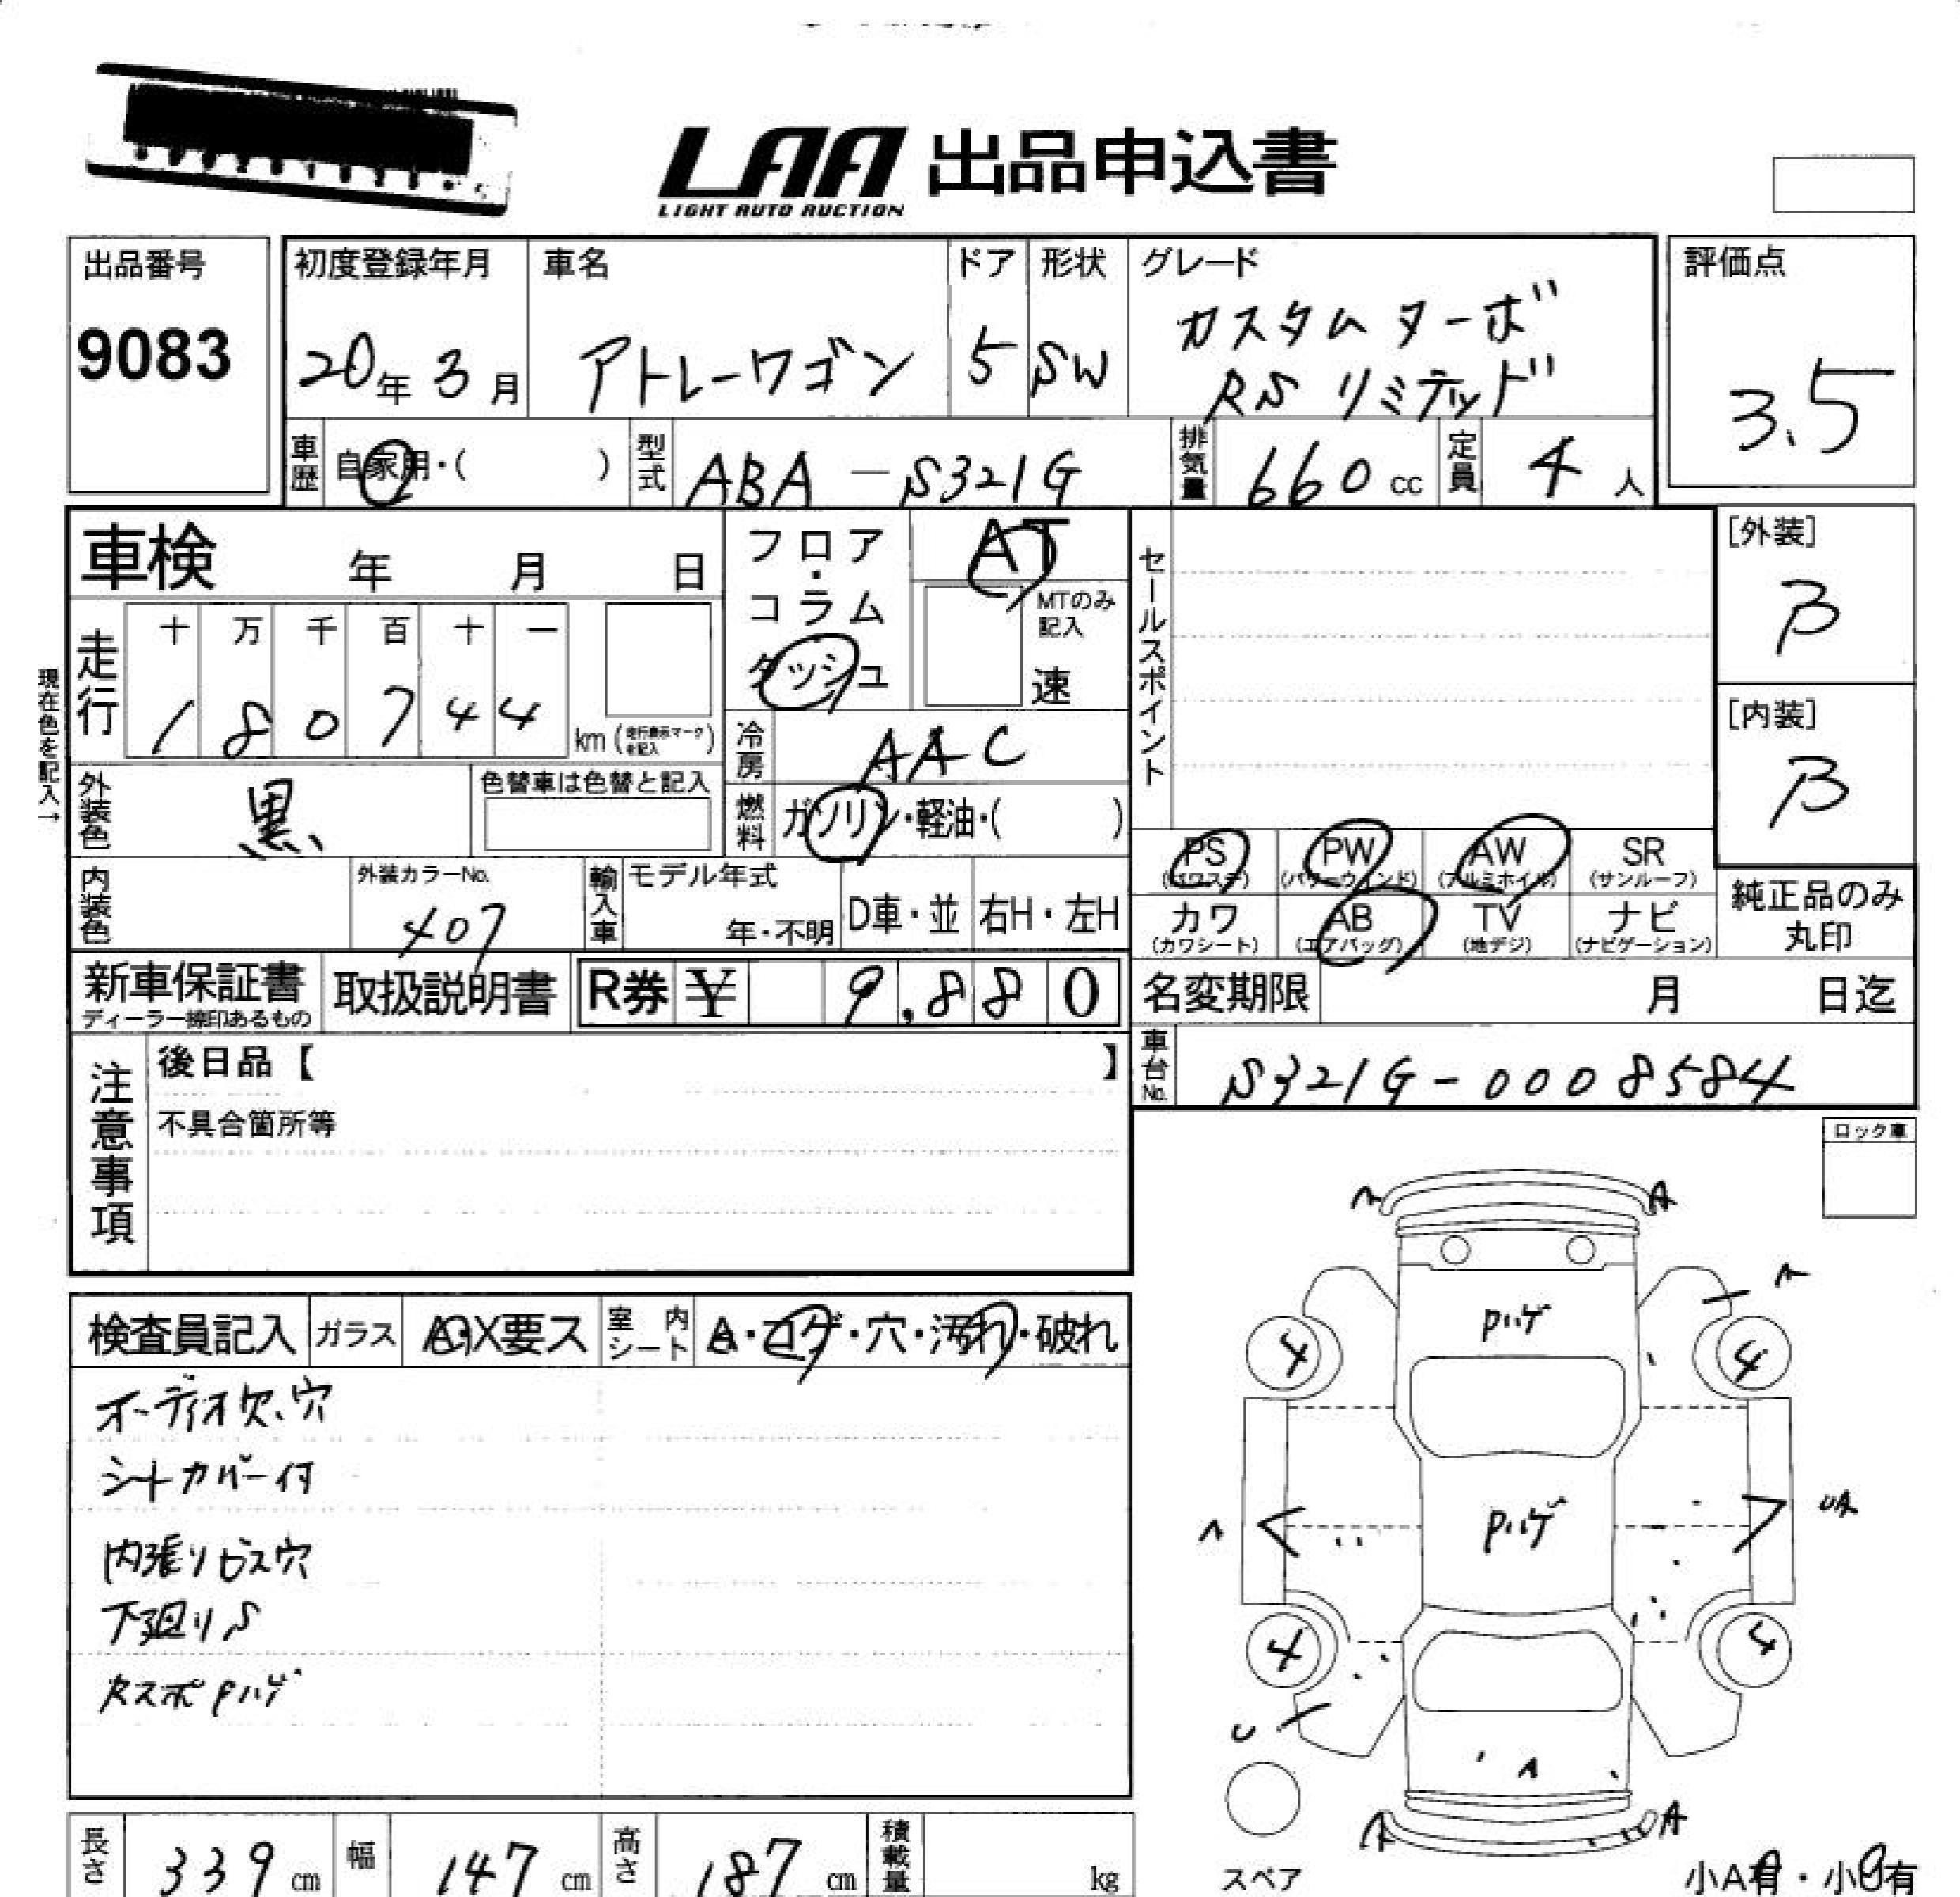 LAA 出品申込書
LIGHT AUTO AUCTION
出品番号
9083
初度登録年月
20年 3月
車名
アトレーワゴン
ドア
5
形状
SW
グレード
カスタムターボ
RSリミテッド
評価点
3.5
車歴 自家用・( )
型式 ABA-S321G
排気量 660 cc
定員 4 人
車検 年 月 日
フロア・コラム
ダッシュ
AT
MTのみ記入
速
セールスポイント
[外装]
B
[内装]
B
現在色を記入→
走行
十 万 千 百 十 一
1 8 0 7 4 4
km (走行表示マークを記入)
冷房 AAC
外装色 黒
色替車は色替と記入
燃料 ガソリン・軽油・( )
PS (パワステ)
PW (パワーウインド)
AW (アルミホイル)
SR (サンルーフ)
内装色
外装カラーNo.
X07
輸入車
モデル年式
年・不明
D車・並
右H・左H
カワ (カワシート)
AB (エアバッグ)
TV (地デジ)
ナビ (ナビゲーション)
純正品のみ丸印
新車保証書
ディーラー捺印あるもの
取扱説明書
R券 ¥ 9,880
名変期限 月 日迄
車台No. S321G-0008584
注意事項
後日品【 】
不具合箇所等
ロック車
検査員記入
ガラス
A・X要ス
室内シート
A・コゲ・穴・汚れ・破れ
オーディオ欠、穴
シートカバー付
内張りビス穴
下廻りS
カスポPハゲ
A A
A
Pハゲ
4 4
A
Pハゲ
UA
4 4
U
A
A A
スペア
小A有・小U有
長さ 339 cm
幅 147 cm
高さ 187 cm
積載量 kg